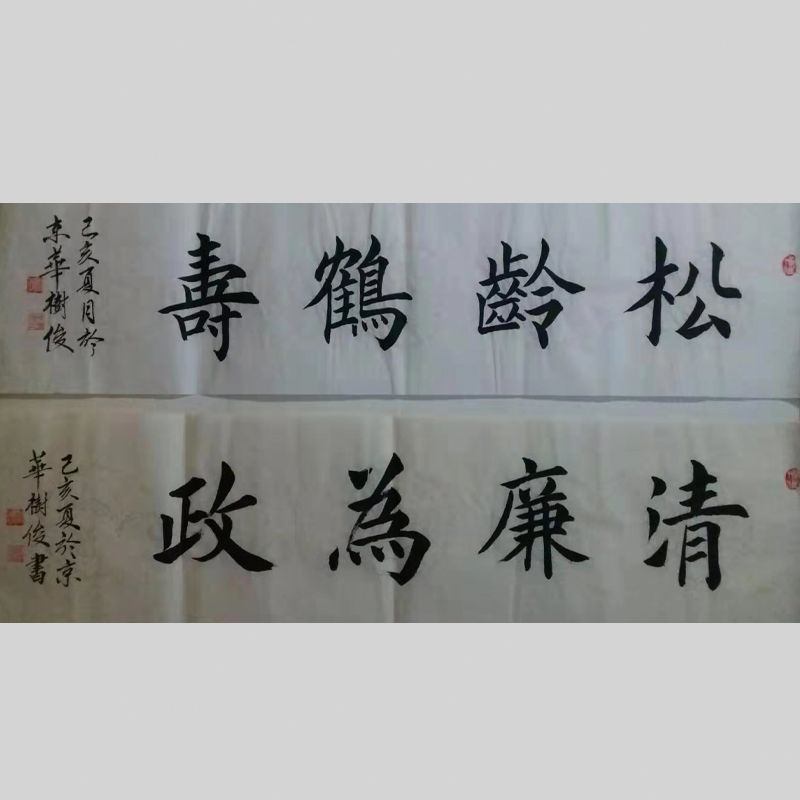 松齡鶴壽
己亥夏月於
京華樹俊
清廉為政
己亥夏於京
華樹俊書